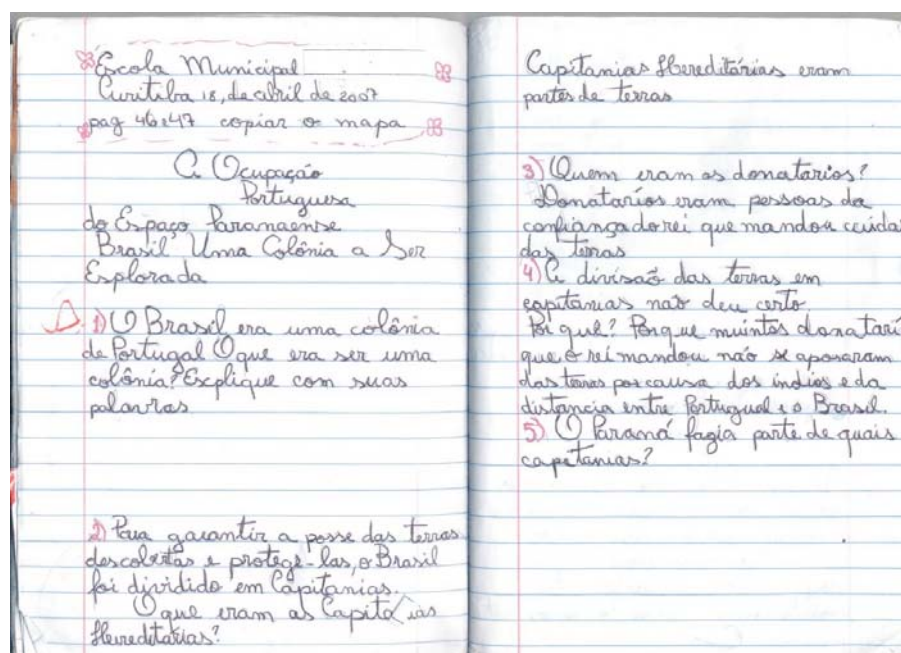 Escola Municipal
Curitiba 18, de abril de 2007
pag 46 e 47 copiar o mapa
A Ocupação
Portuguesa
do Espaço Paranaense
Brasil Uma Colônia a Ser
Explorada
1) O Brasil era uma colônia
de Portugal O que era ser uma
colônia? Esplique com suas
palavras
2) Para garantir a posse das terras
descobertas e protegê-las, o Brasil
foi dividido em Capitanias.
O que eram as Capita ias
Hereditárias?
Capitanias Hereditárias eram
partes de terras
3) Quem eram os donatarios?
Donatarios eram pessoas da
confiança do rei que mandou cuida
das terras
4) A divisaõ das terras em
capitanias naõ deu certo.
Por quê? Porque muintos donatari
que o rei mandou não se aposaram
das terras por causa dos indios e da
distancia entre Portugual e o Brasil.
5) O Paraná fazia parte de quais
capitanias?